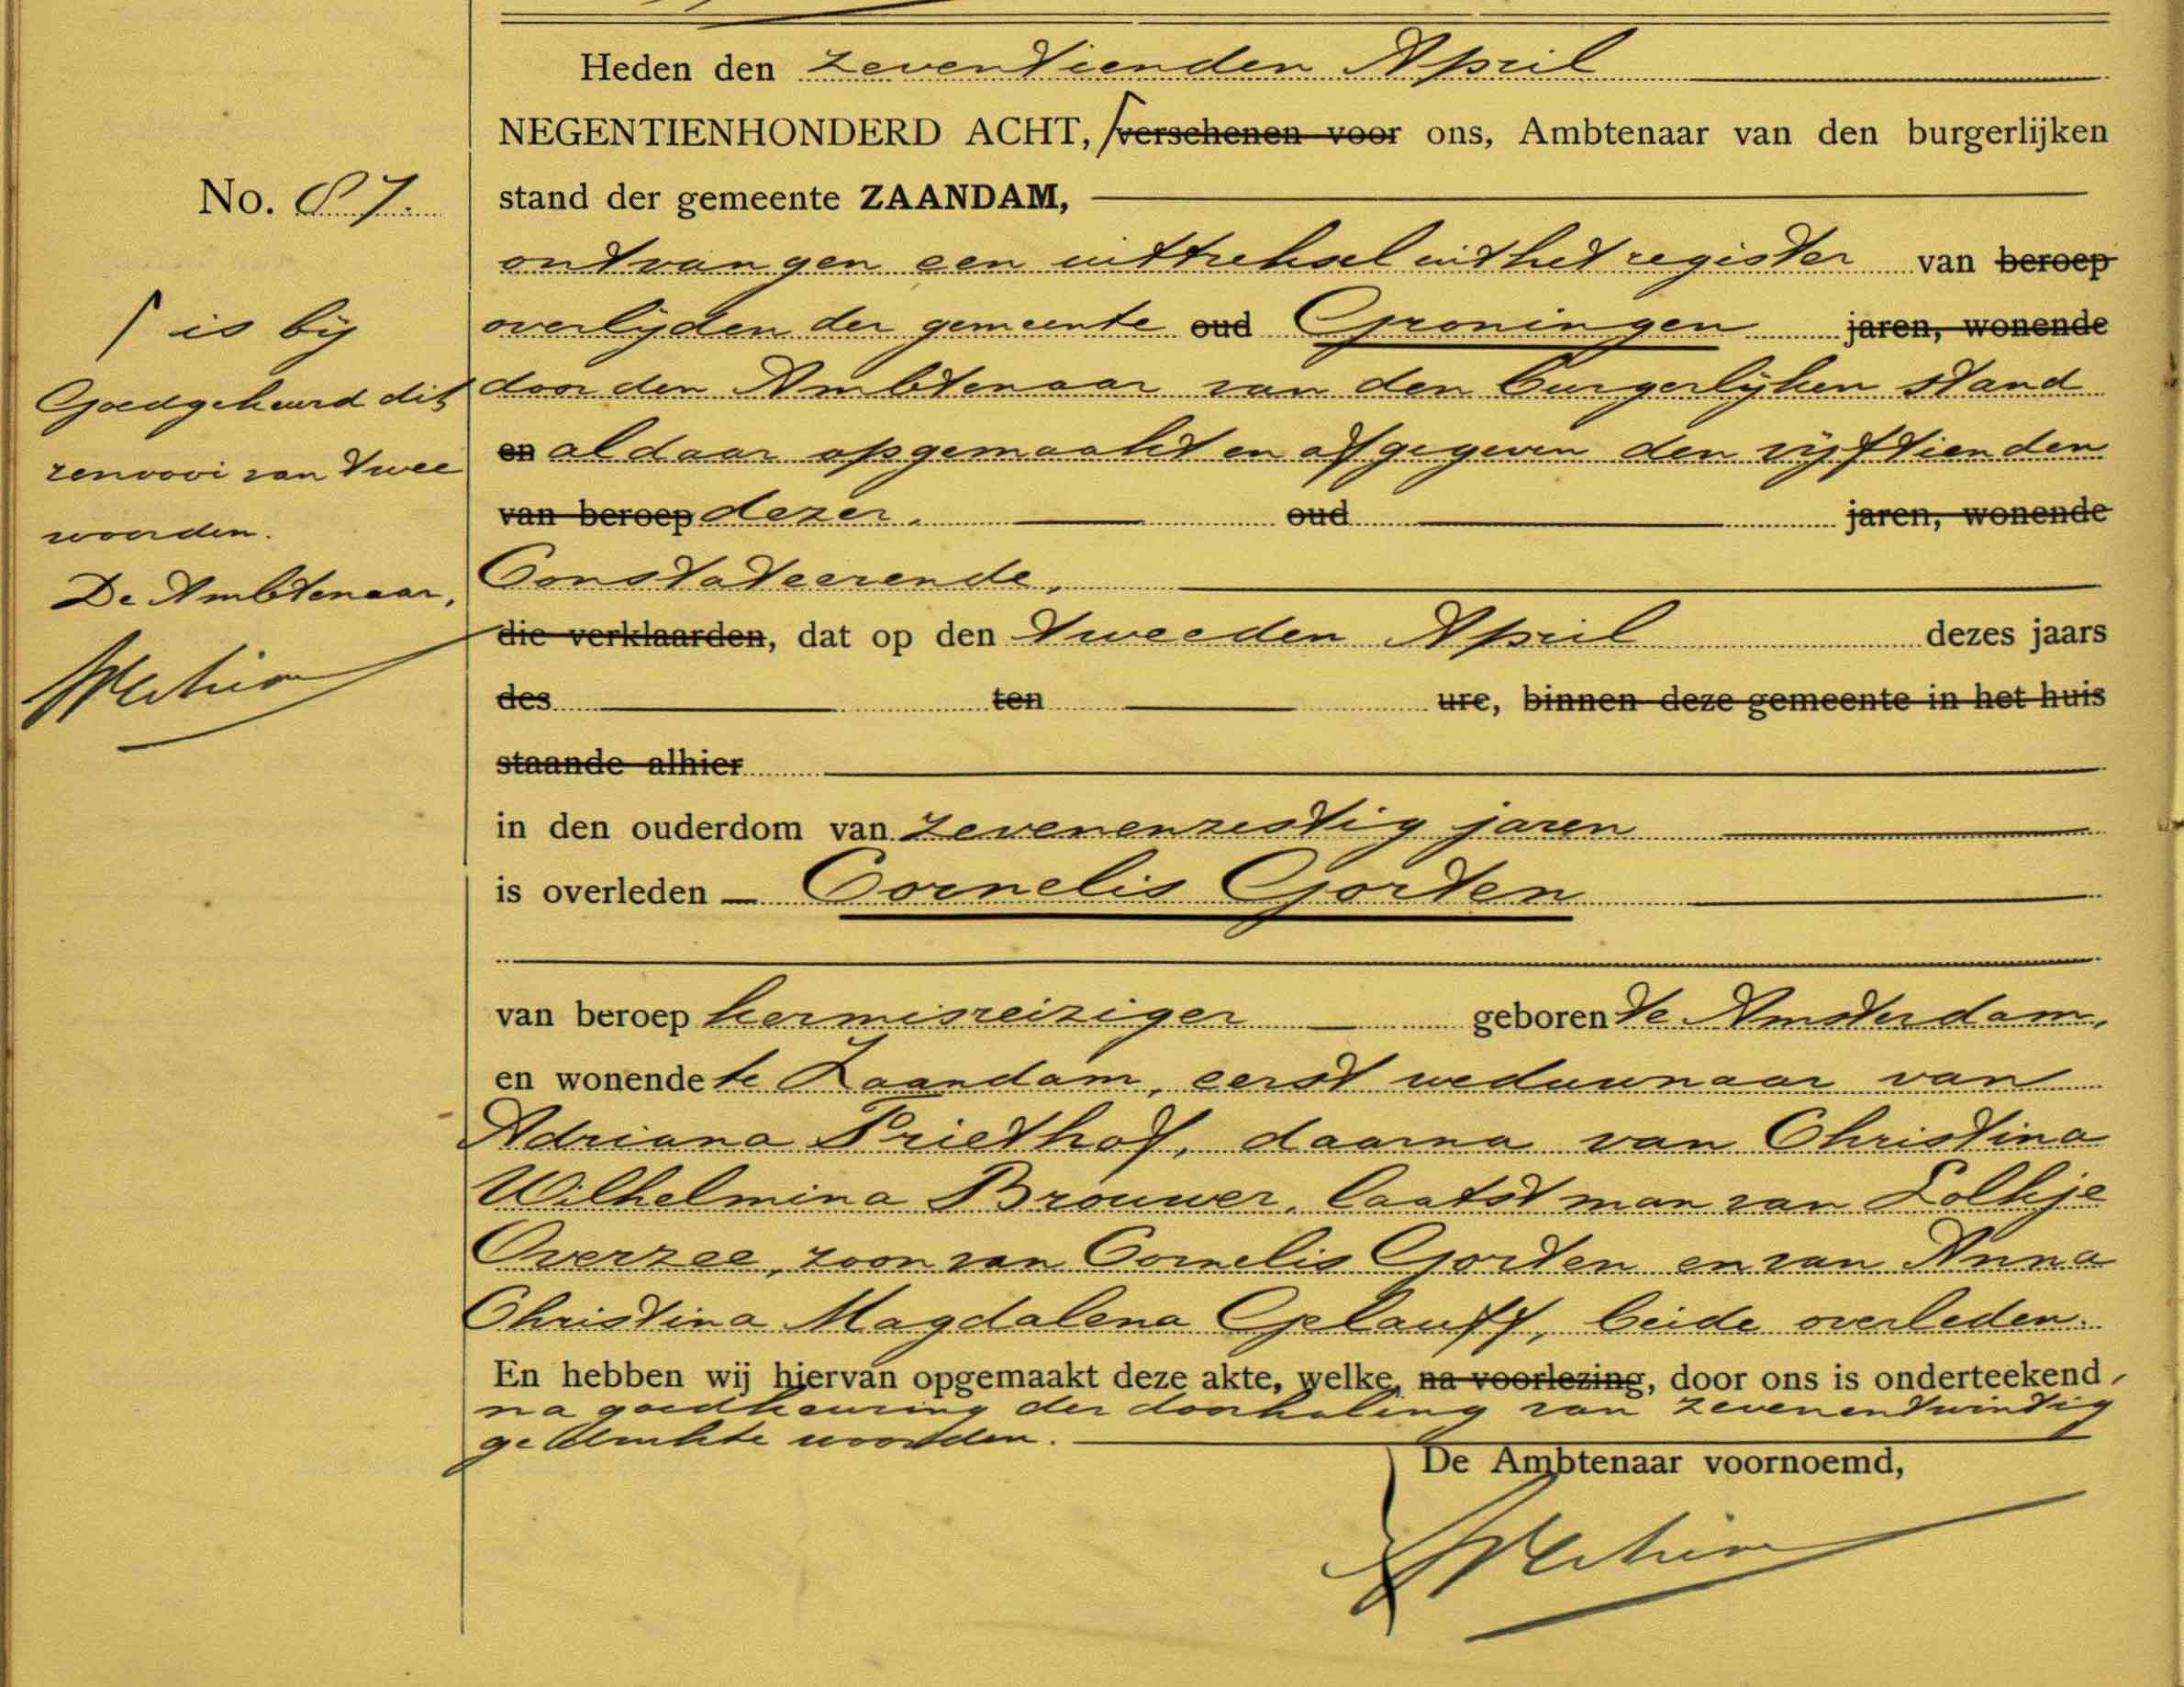 Heden den zeventienden April
NEGENTIENHONDERD ACHT, ⌈verschenen voor ons, Ambtenaar van den burgerlijken
No. 87.
stand der gemeente ZAANDAM,
ontvangen een uittreksel uit het register van beroep
⌈ is bij
overlijden der gemeente oud Groningen jaren, wonende
Goedgekeurd dit
door den Ambtenaar van den burgerlijken stand
renvooi van twee
en aldaar opgemaakt en afgegeven den vijftienden
woorden.
van beroep dezer, oud jaren, wonende
De Ambtenaar,
Constateerende,
die verklaarden, dat op den tweeden April dezes jaars
des ten ure, binnen deze gemeente in het huis
staande alhier
in den ouderdom van zevenenzestig jaren
is overleden Cornelis Gorten
van beroep kermisreiziger geboren te Amsterdam,
en wonende te Zaandam, eerst weduwnaar van
Adriana Friethof, daarna van Christina
Wilhelmina Brouwer, laatst man van Lolkje
Overzee, zoon van Cornelis Gorten en van Anna
Christina Magdalena Gelauff, beide overleden.
En hebben wij hiervan opgemaakt deze akte, welke, na voorlezing, door ons is onderteekend,
na goedkeuring der doorhaling van zevenentwintig
gedrukte woorden.
De Ambtenaar voornoemd,